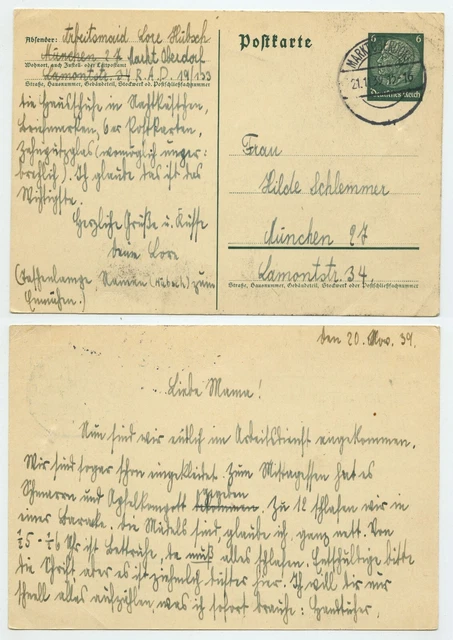 Absender: Arbeitsmaid Lore Hübsch
München 27 Markt Oberdorf
Wohnort, auch Zustell- oder Leitpostamt
Lamontstr. 34 R.A.D. 19/133
Straße, Hausnummer, Gebäudeteil, Stockwerk od. Postschließfachnummer
die Hausschuhe im
Briefmarken, 6er Postkarten,
Zahnputzglas (womöglich unzer-
brechlich). Ich glaube das ist das
Wichtigste.
Herzliche Grüße u. Küsse
Deine Lore
(Taschenlampe Namen (Hübsch) zum
Einnähen.)
Postkarte
6 6
Deutsches Reich
MARKT
21.1
Frau
Hilde Schlemmer
München 27
Lamontstr. 34.
Straße, Hausnummer, Gebäudeteil, Stockwerk oder Postschließfachnummer
den 20. Nov. 39.
Liebe Mama!
Nun sind wir endlich im Arbeitsdienst angekommen.
Wir sind sogar schon eingekleidet. Zum Mittagessen hat es
Schmarrn und Apfelkompott gegeben. Zu 12 schlafen wir in
einer Baracke. Die Mädels sind, glaube ich, ganz nett. Von
Uhr ist Bettruhe, da muß alles schlafen. Entschuldige bitte
die Schrift aber es ist ziemlich düster hier. Ich will dir nur
schnell alles aufzählen was ich sofort brauche: Handtücher,